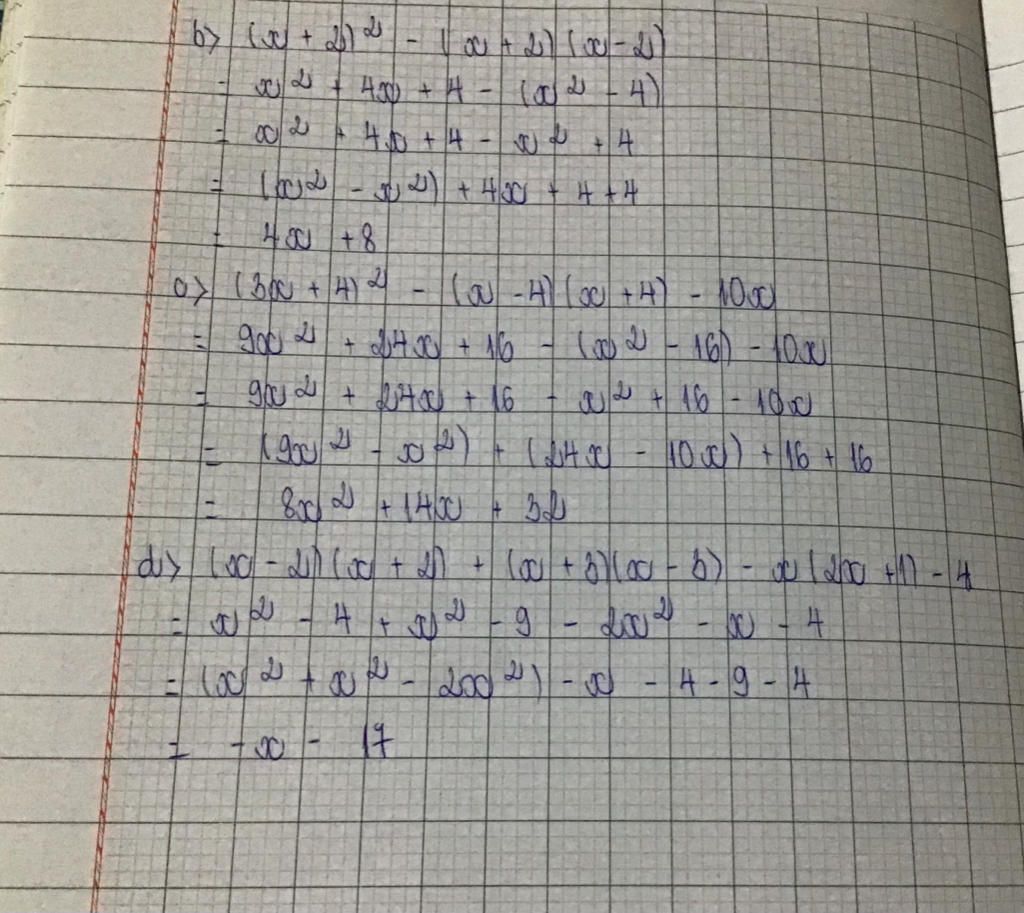 b> (x + 2)² - (x + 2)(x - 2)
= x² + 4x + 4 - (x² - 4)
= x² + 4x + 4 - x² + 4
= (x² - x²) + 4x + 4 + 4
= 4x + 8
c> (3x + 4)² - (x - 4)(x + 4) - 10x
= 9x² + 24x + 16 - (x² - 16) - 10x
= 9x² + 24x + 16 - x² + 16 - 10x
= (9x² - x²) + (24x - 10x) + 16 + 16
= 8x² + 14x + 32
d> (x - 2)(x + 2) + (x + 3)(x - 3) - x(2x + 1) - 4
= x² - 4 + x² - 9 - 2x² - x - 4
= (x² + x² - 2x²) - x - 4 - 9 - 4
= - x - 17